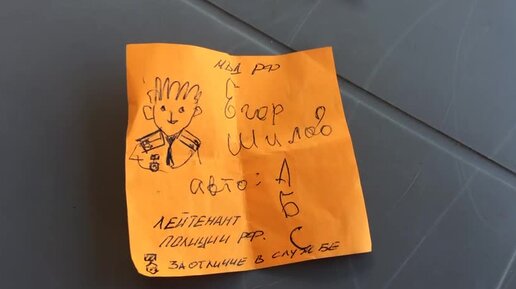 МВД РФ
Егор
Шилов
авто: А
Б
С
ЛЕЙТЕНАНТ
ПОЛИЦИИ РФ.
ЗА ОТЛИЧИЕ В СЛУЖБЕ